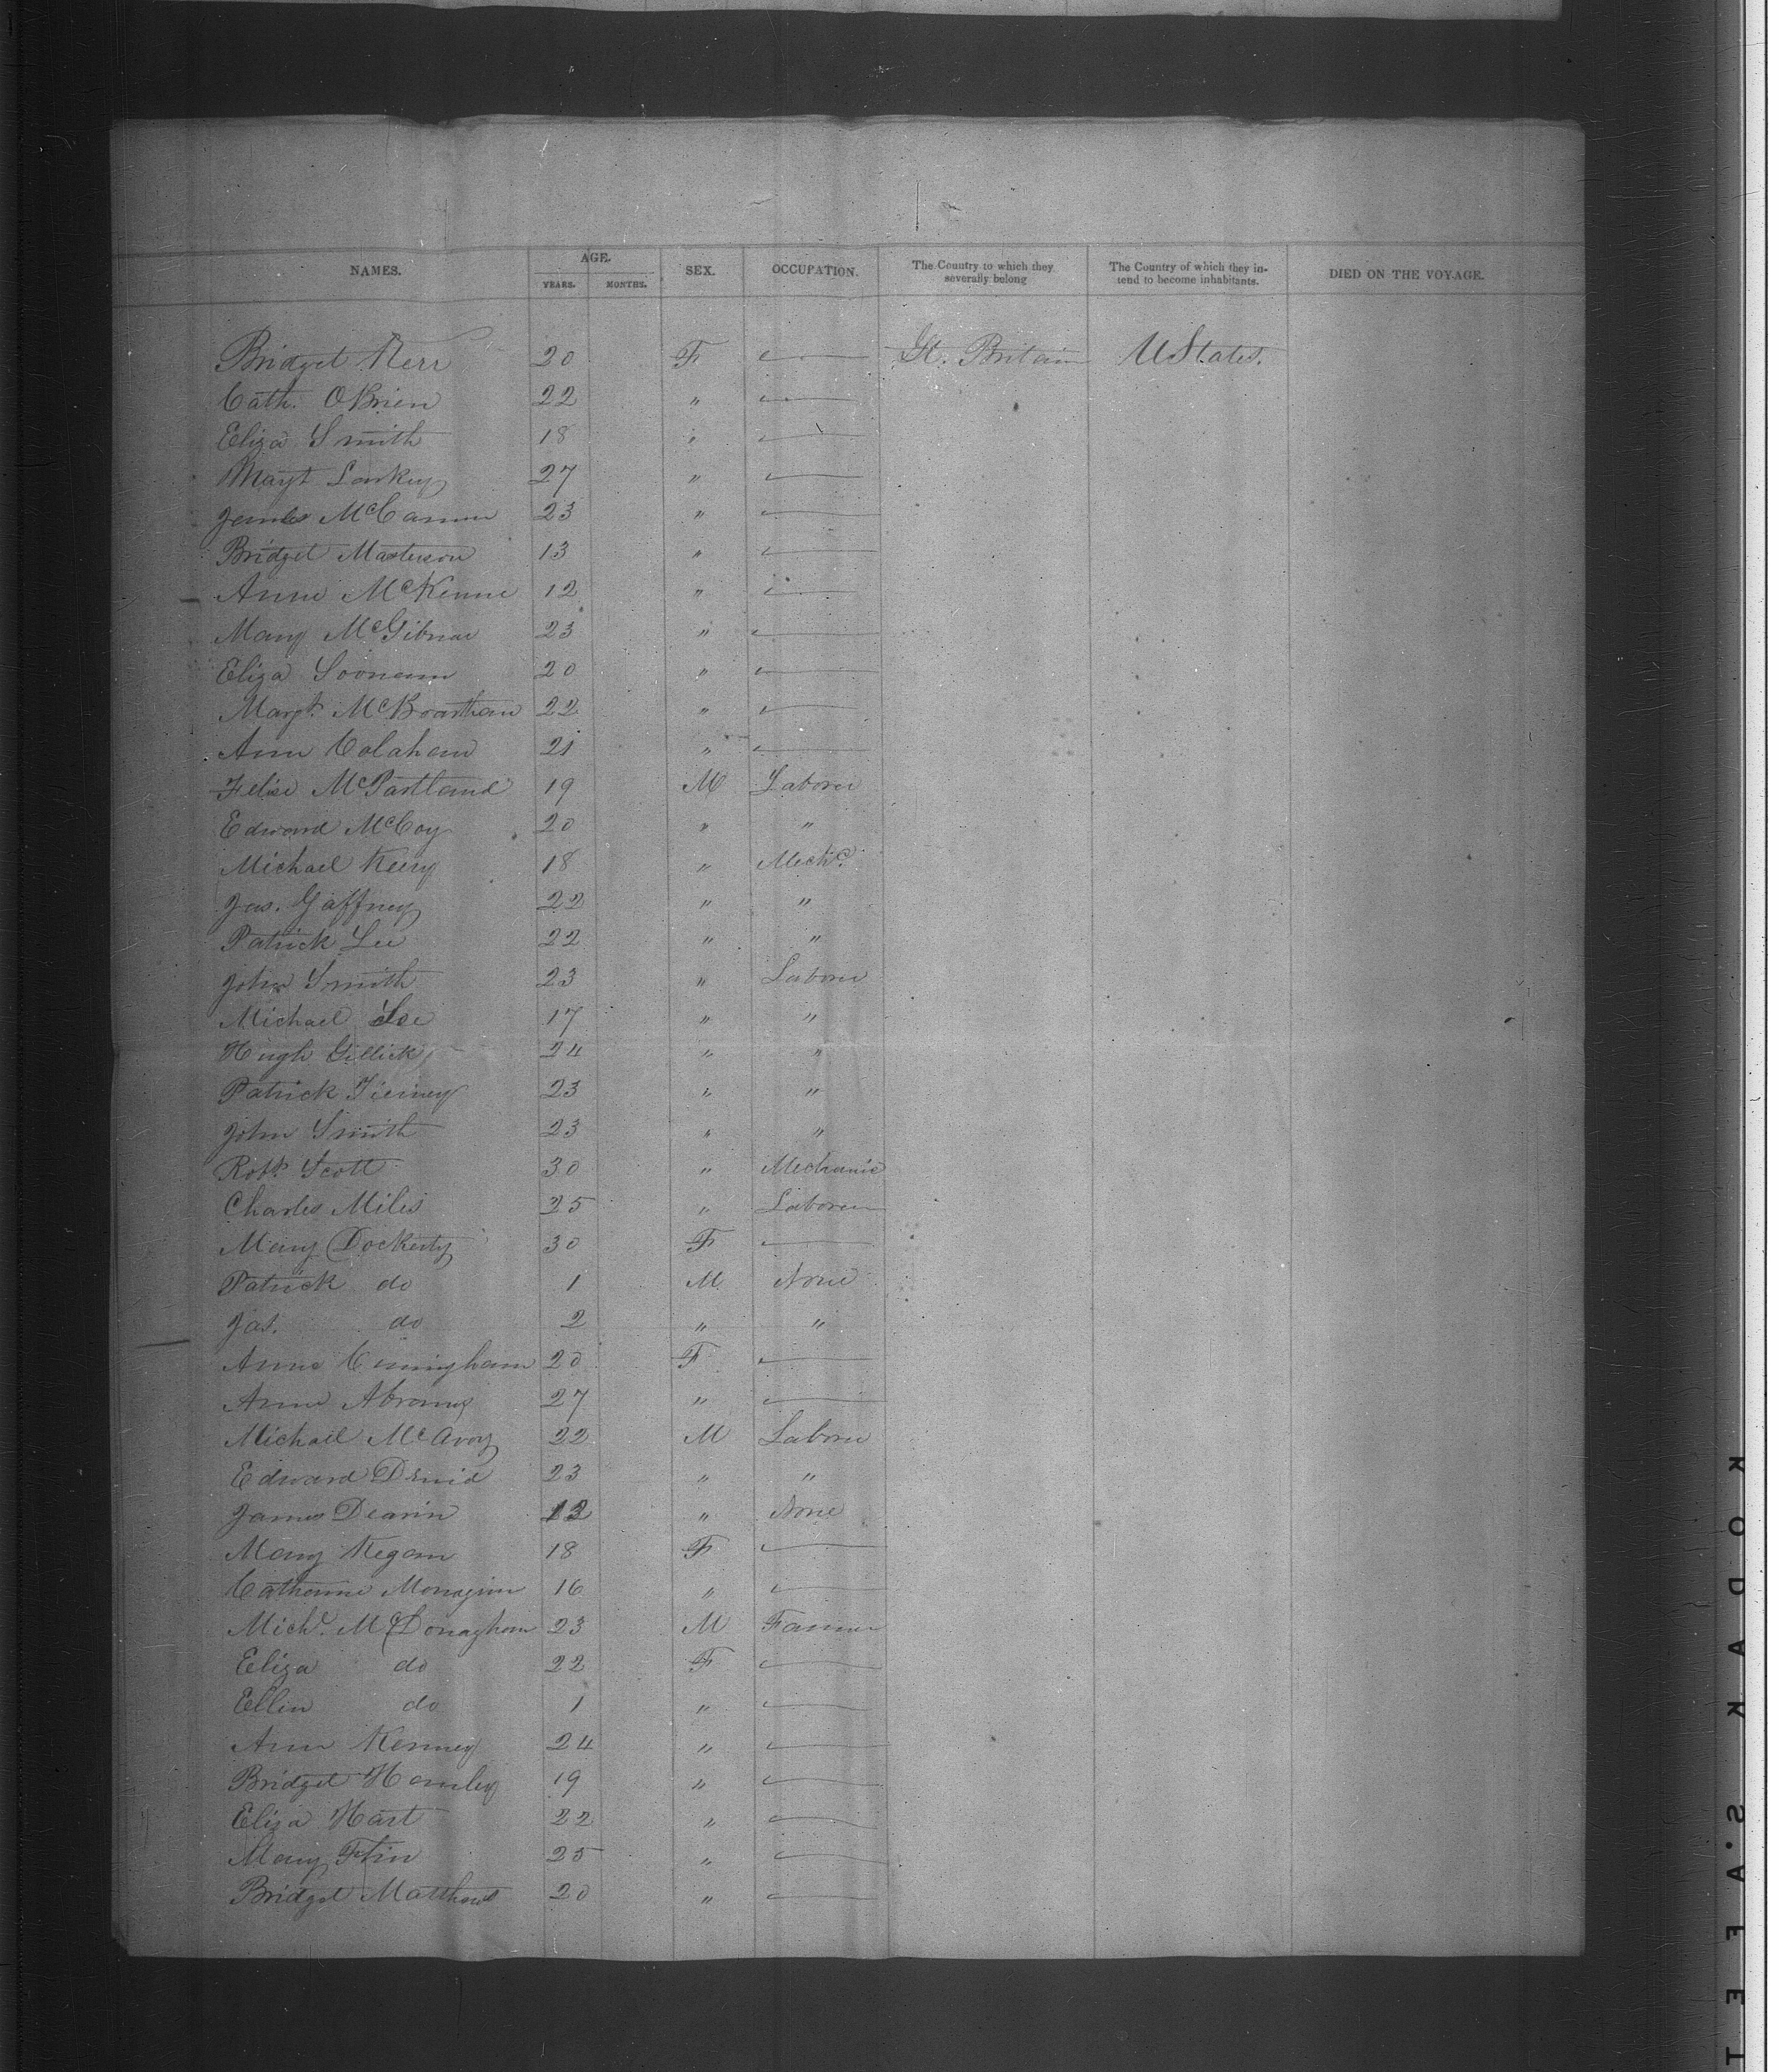 NAMES. AGE. YEARS. MONTHS. SEX. OCCUPATION. The Country to which they severally belong The Country of which they intend to become inhabitants. DIED ON THE VOYAGE.
Bridget Kerr 20 F — Gt. Britain UStates.
Cath. OBrien 22 " —
Eliza Smith 18 " —
Margt Larkey 27 " —
James McCann 23 " —
Bridget Masterson 13 " —
Anne McKenne 12 " —
Mary McGibnae 23 " —
Eliza Soonann 20 " —
Margt. McBrartham 22 " —
Ann Calahan 21 " —
Felix McPartland 19 M Laborer
Edward McCoy 20 " "
Michael Keery 18 " Mechc.
Jas. Gaffney 22 " "
Patrick Lee 22 " "
John Smith 23 " Laborer
Michael Lee 17 " "
Hugh Gillick 24 " "
Patrick Tierney 23 " "
John Smith 23 " "
Robt. Scott 30 " Mechanic
Charles Miles 25 " Laborer
Mary Dockerty 30 F —
Patrick do 1 M None
Jas. do 2 " "
Anne Cuningham 20 F —
Anne Abrams 27 " —
Michael McAvoy 22 M Laborer
Edward 23 " "
James Dearin 13 " None
Mary Kegan 18 F —
Catherine Monagan 16 " —
Michl. McDonagham 23 M Farmer
Eliza do 22 F —
Ellen do 1 " —
Ann Kenney 24 " —
Bridget Hamley 19 " —
Eliza Hart 22 " —
Mary Flin 25 " —
Bridget Matthews 20 " —
KODAK S.A.F.E.T